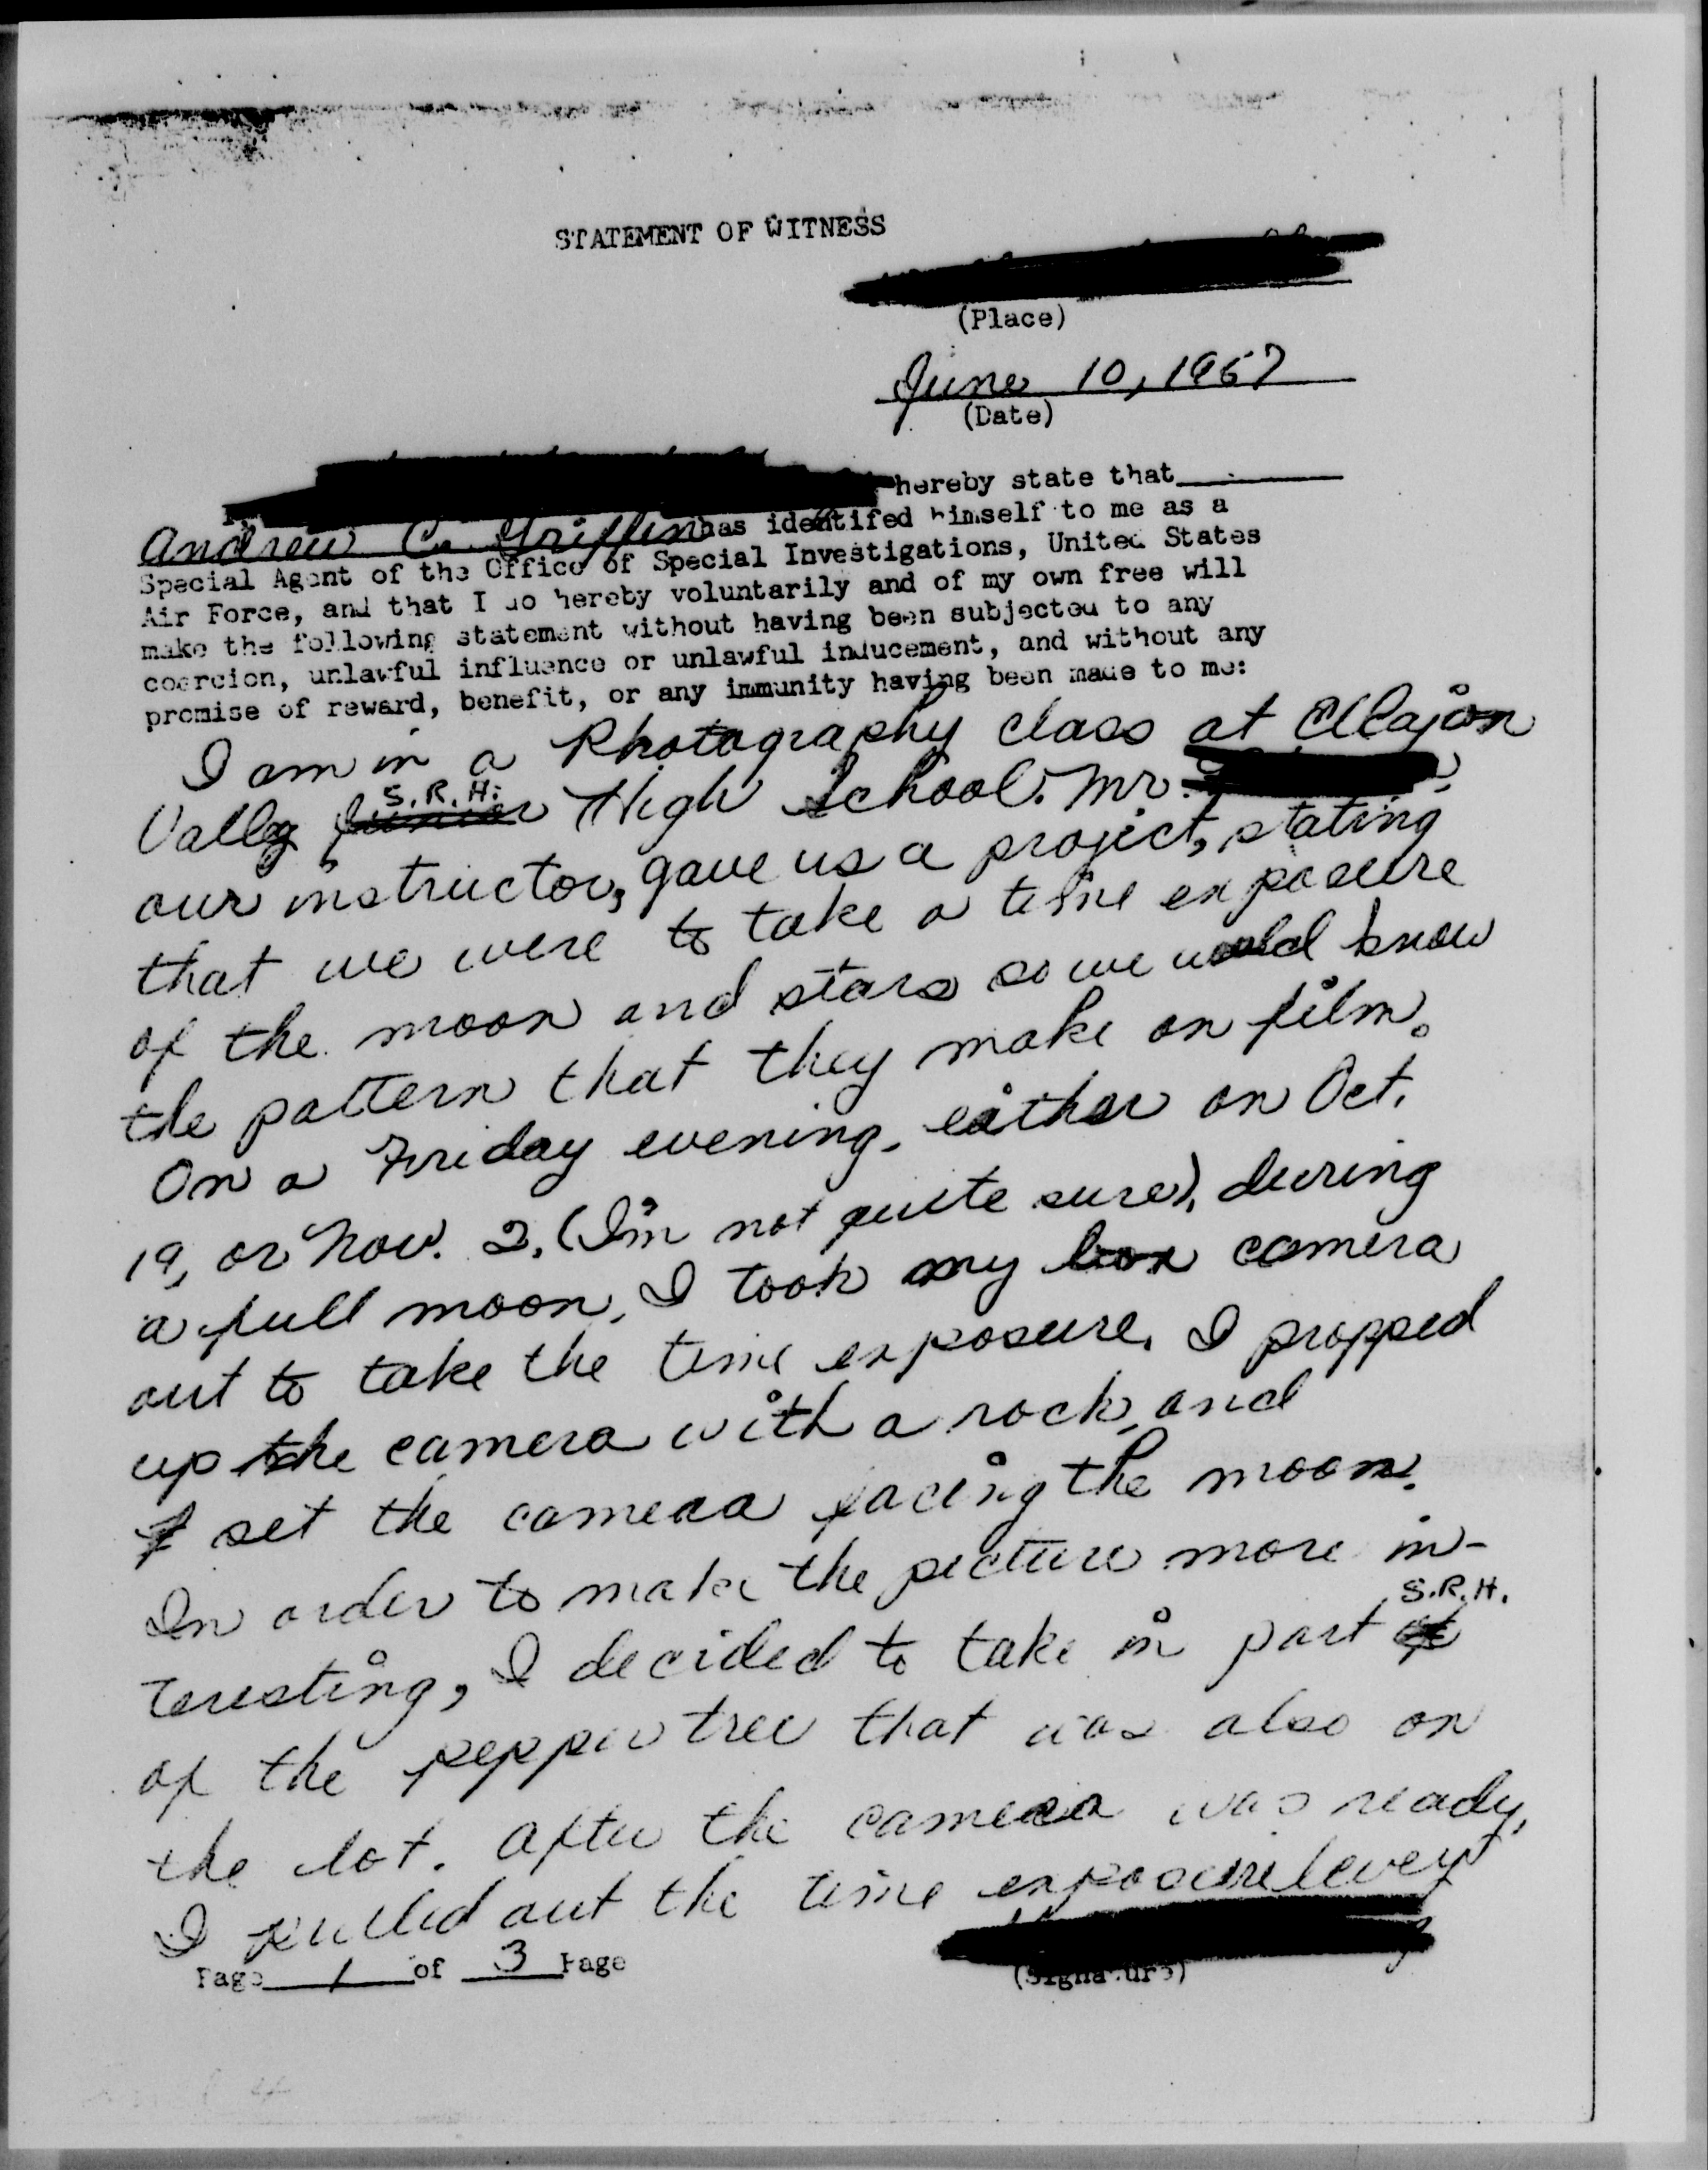 STATEMENT OF WITNESS
(Place)
June 10, 1957
(Date)
hereby state that
Andrew C. Griffin has identifed himself to me as a
Special Agent of the Office of Special Investigations, United States
Air Force, and that I do hereby voluntarily and of my own free will
make the following statement without having been subjected to any
coercion, unlawful influence or unlawful inducement, and without any
promise of reward, benefit, or any immunity having been made to me:
I am in a Photography class at El Cajon
S.R.H.
Valley Junior High School. Mr.
our instructor, gave us a project, stating
that we were to take a time exposure
of the moon and stars so we would know
the pattern that they make on film.
On a Friday evening, either on Oct.
19, or Nov. 2, (I'm not quite sure), during
a full moon, I took my box camera
out to take the time exposure. I propped
up the camera with a rock, and
I set the camera facing the moon.
In order to make the picture more in-
S.R.H.
teresting, I decided to take in part of
of the pepper tree that was also on
the lot. After the camera was ready,
I pulled out the time exposure lever
Page 1 of 3 Page
(Signature)